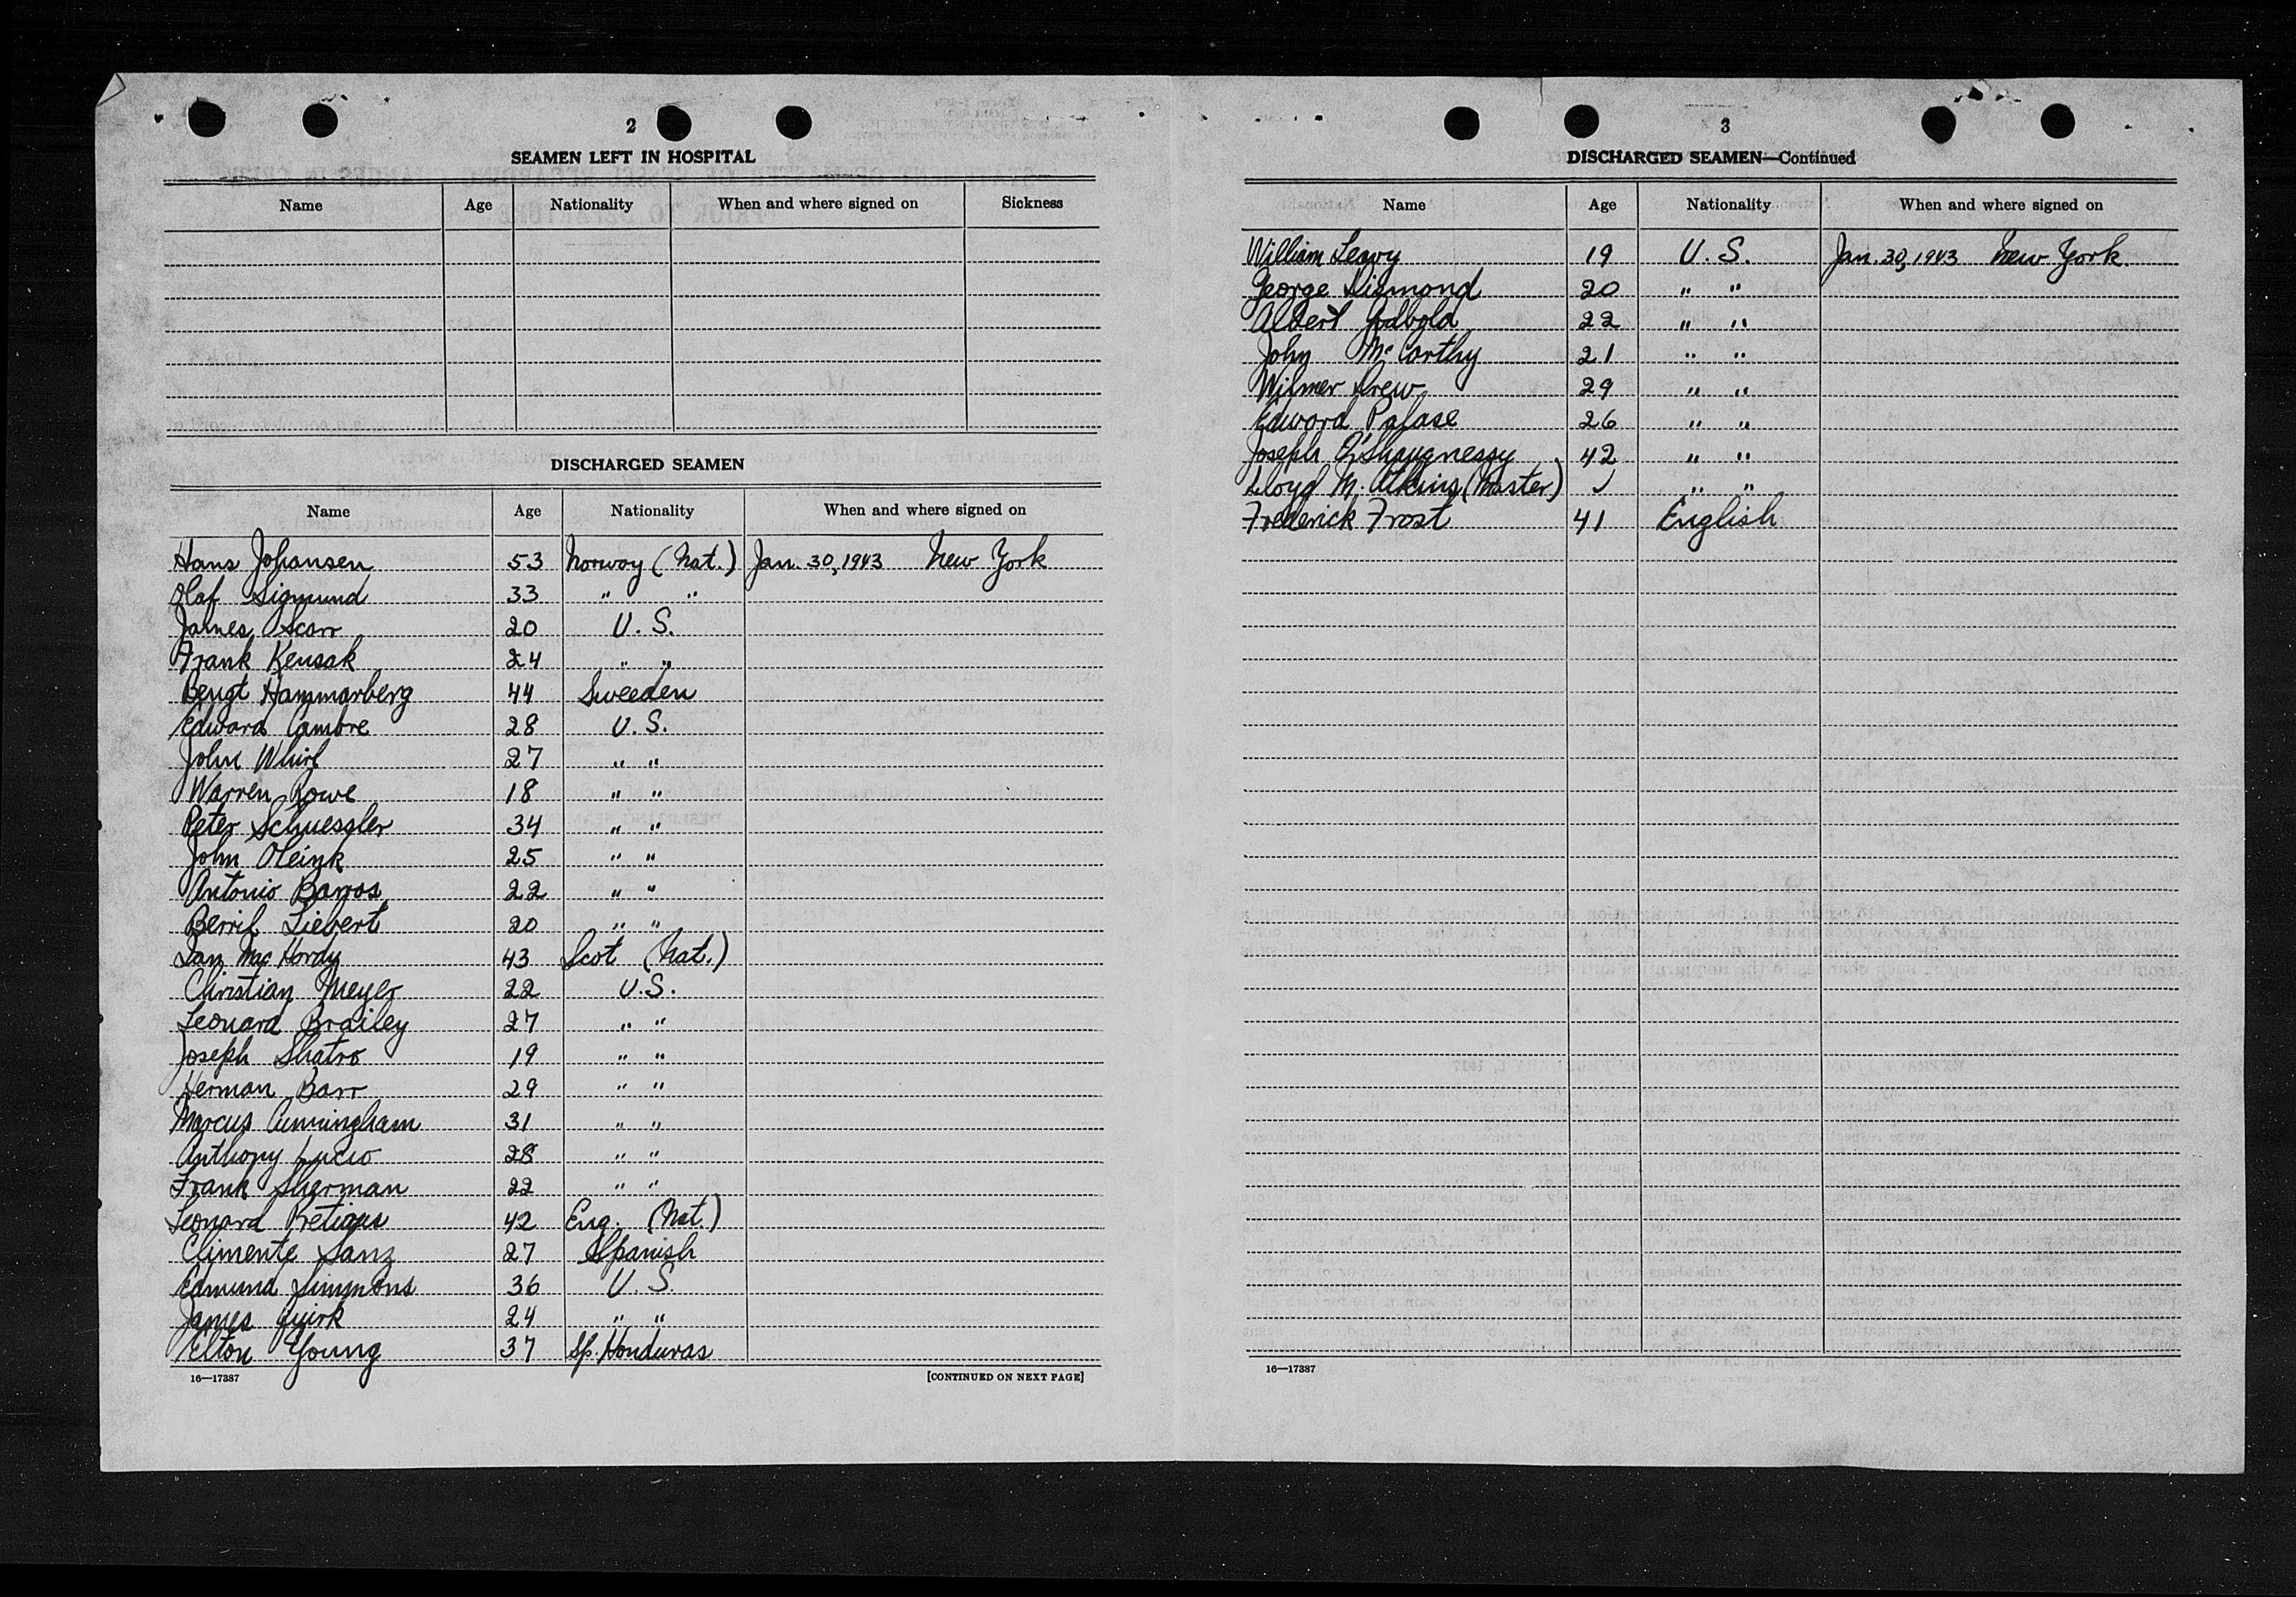 2
SEAMEN LEFT IN HOSPITAL
Name Age Nationality When and where signed on Sickness
DISCHARGED SEAMEN
Name Age Nationality When and where signed on
Hans Johansen 53 Norway (Nat.) Jan. 30, 1943 New York
Olaf Sigmund 33 " "
James Scarr 20 U. S.
Frank Kensak 24 " "
Bengt Hammarberg 44 Sweeden
Edward Cambre 28 U. S.
John Whirl 27 " "
Warren Rowe 18 " "
Peter Schuessler 34 " "
John Oleink 25 " "
Antonio Barros 22 " "
Berril Liebert 20 " "
Ian Mac Hardy 43 Scot (Nat.)
Christian Meyer 22 U.S.
Leonard Brailey 27 " "
Joseph Shatro 19 " "
Herman Barr 29 " "
Marcus Cunningham 31 " "
Anthony Lucio 28 " "
Frank Sherman 22 " "
Leonard 42 Eng. (Nat.)
Climente Sanz 27 Spanish
Edmund Simmons 36 U. S.
James Quirk 24 " "
Elton Young 37 Sp. Honduras
16—17387 [CONTINUED ON NEXT PAGE]
3
DISCHARGED SEAMEN—Continued
Name Age Nationality When and where signed on
William Leavy 19 U. S. Jan. 30, 1943 New York.
George Dismond 20 " "
Albert Godbold 22 " "
John McCarthy 21 " "
Wilmer Drew 29 " "
Edward Palase 26 " "
Joseph O'Shaugnessy 42 " "
Lloyd M. Atkins (Master) " "
Frederick Frost 41 English
16—17387